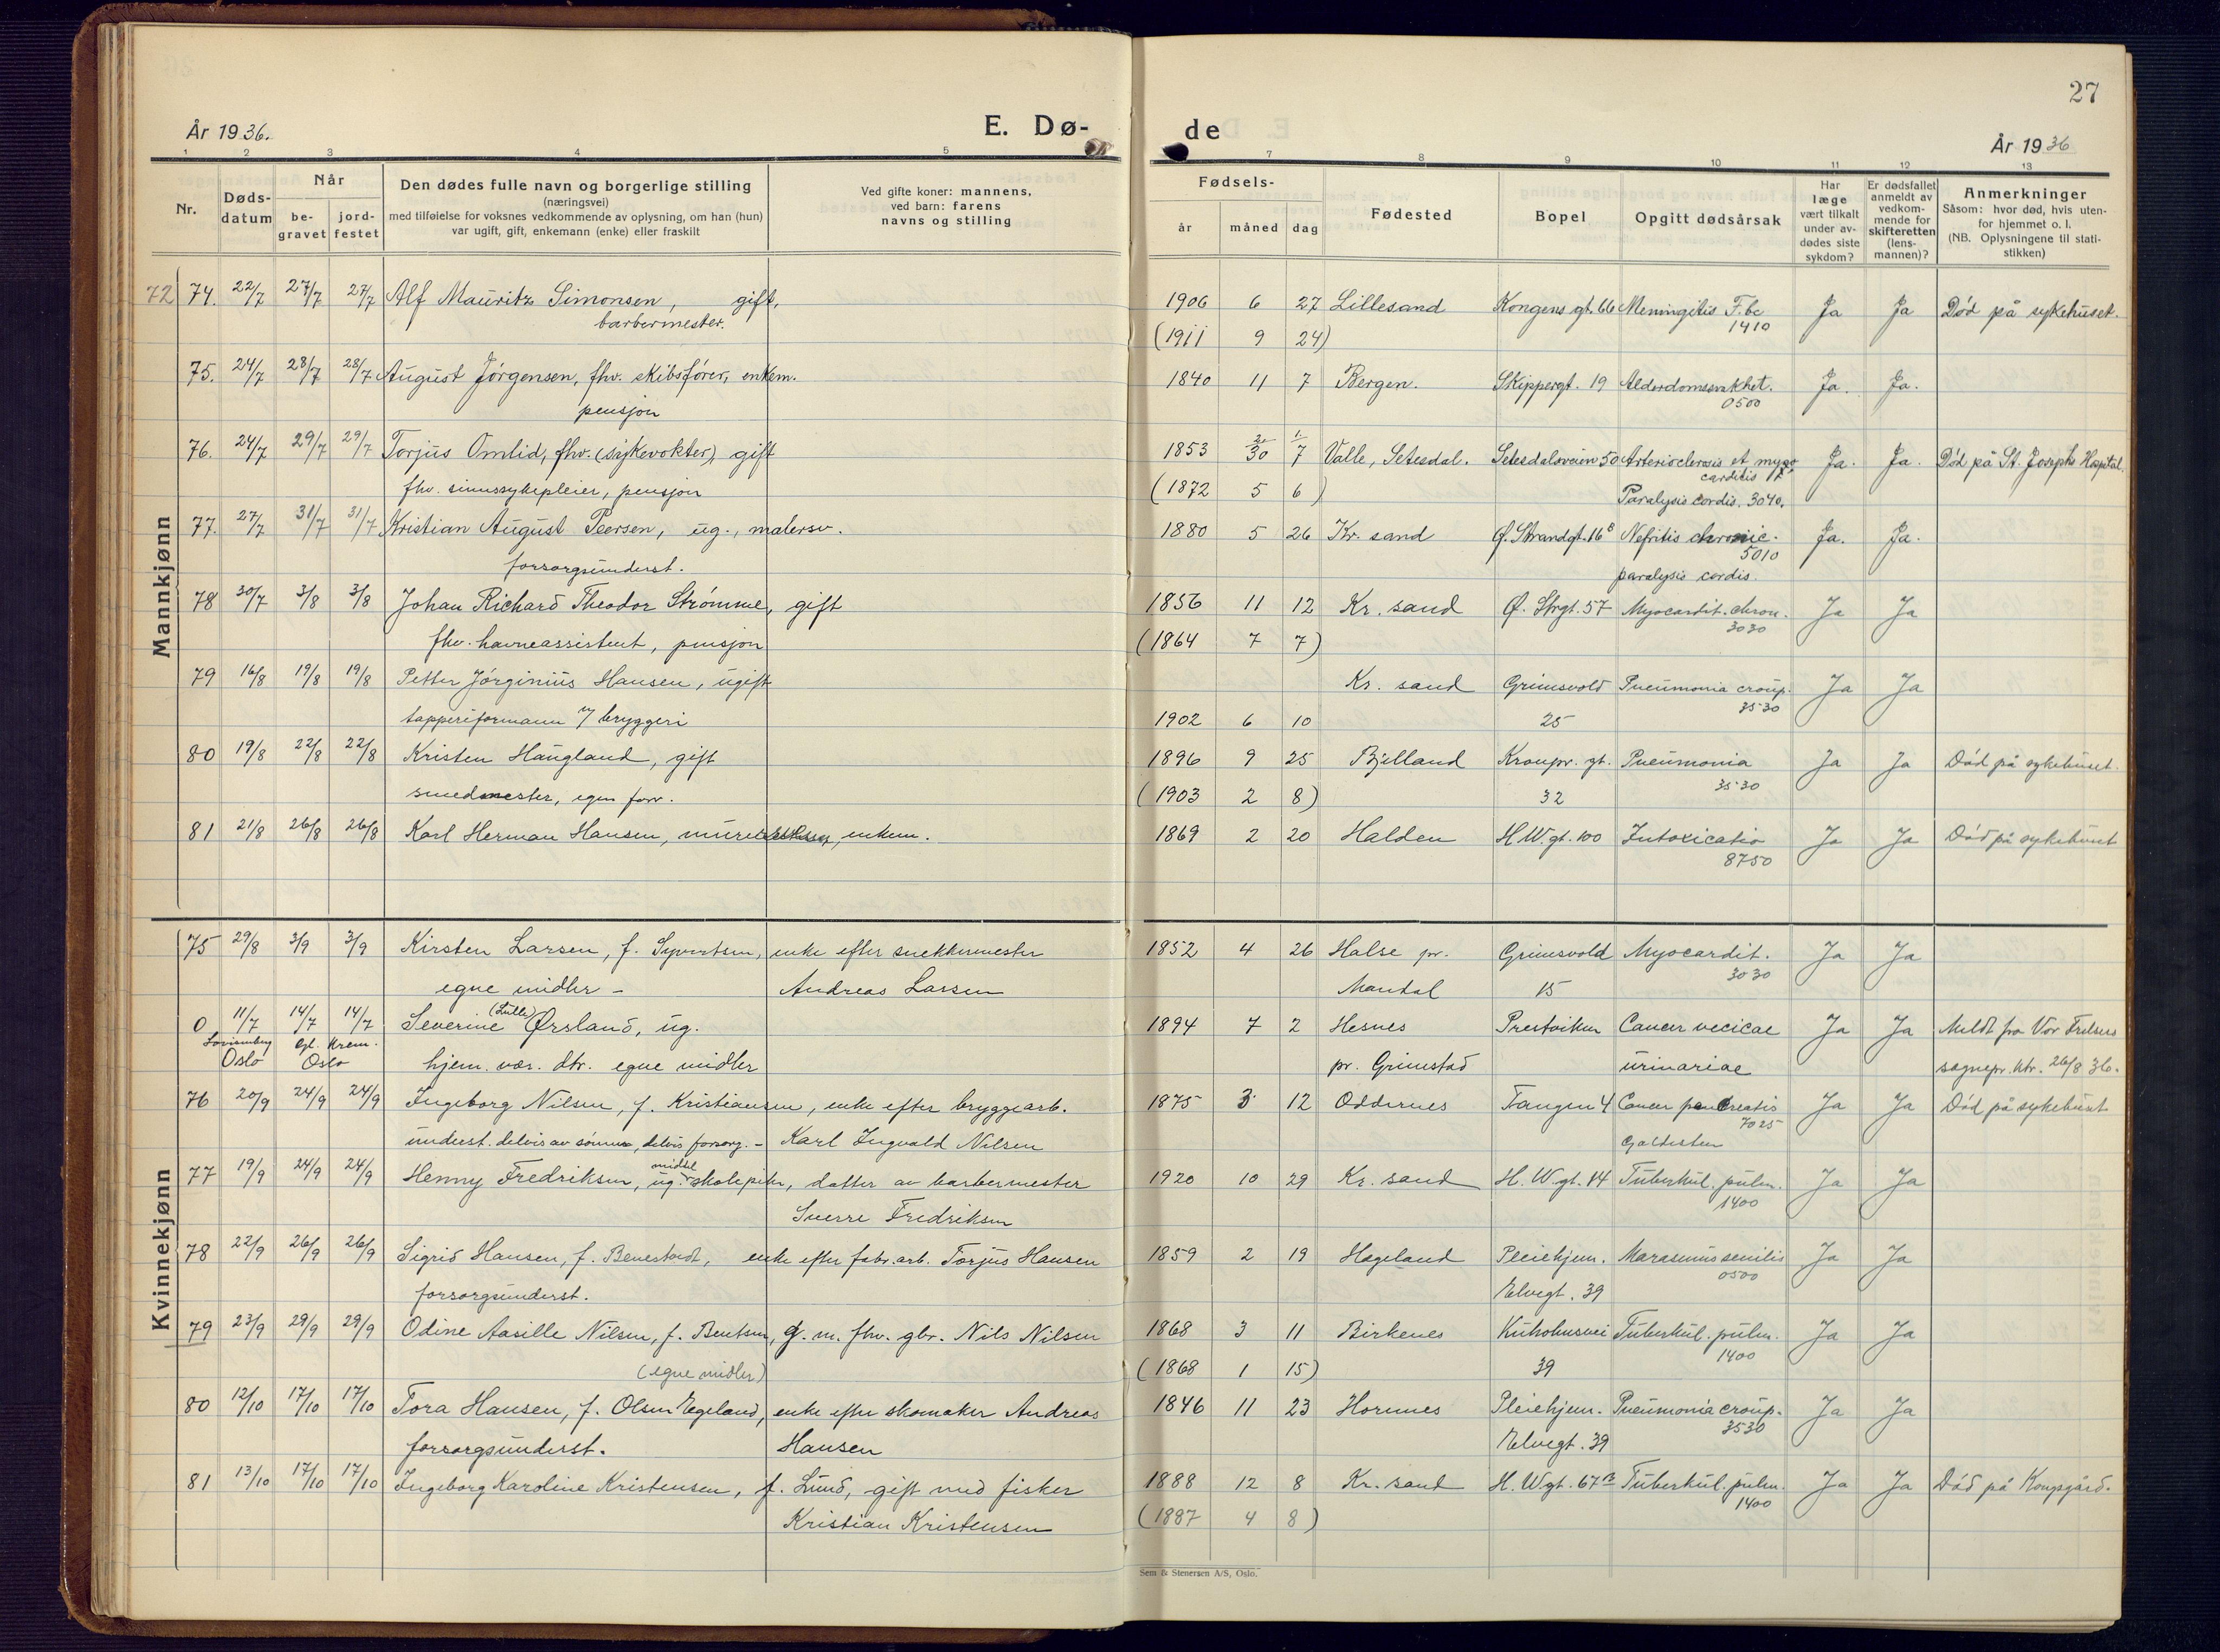 27
År 1936.
E. Dø-
de
År 1936
1 2 3 4 5
7 8 9 10 11 12 13
Nr.
Døds-
datum
Når
be-
gravet
jord-
festet
Den dødes fulle navn og borgerlige stilling
(næringsvei)
med tilføielse for voksnes vedkommende av oplysning, om han (hun)
var ugift, gift, enkemann (enke) eller fraskilt
Ved gifte koner: mannens,
ved barn: farens
navns og stilling
Fødsels-
år
måned
dag
Fødested
Bopel
Opgitt dødsårsak
Har
læge
vært tilkalt
under av-
dødes siste
sykdom?
Er dødsfallet
anmeldt av
vedkom-
mende for
skifteretten
(lens-
mannen)?
Anmerkninger
Såsom: hvor død, hvis uten-
for hjemmet o. l.
(NB. Oplysningene til stati-
stikken)
Mannkjønn
72 74. 22/7 27/7 27/7 Alf Mauritz Simonsen, gift, 1906 6 27 Lillesand Kongens gt. 66 Meningitis T.bc Ja Ja Død på sykehuset.
barbermester. 1410
(1911 9 24)
75. 24/7 28/7 28/7 August Jørgensen, fhv. skibsfører, enkem. 1840 11 7 Bergen. Skippergt. 19 Alderdomssvakhet. Ja. Ja.
pensjon 0500
76. 24/7 29/7 29/7 Torjus Omlid, fhv. (sykevokter), gift 1853 30 7 Valle, Setesdal. Setesdalsveien 50 Arteriosclerosis et myo- Ja. Ja. Død på St. Josephs Hospital.
carditis
fhv. sinnssykepleier, pensjon (1872 5 6) Paralysis cordis. 3040.
77. 27/7 31/7 31/7 Kristian August Peersen, ug., malersv. 1880 5 26 Kr. sand Ø. Strandgt. 16 B Nefritis chronic. Ja. Ja.
5010
forsorgsunderst. paralysis cordis.
78 30/7 3/8 3/8 Johan Richard Theodor Strømme, gift 1856 11 12 Kr. sand Ø. Strgt. 57 Myocardit. chron. Ja Ja
3030
fhv. havneassistent, pensjon (1864 7 7)
79 16/8 19/8 19/8 Petter Jørginius Hansen, ugift Kr. sand Grimsvold Pneumonia croup. Ja Ja
3530
tapperiformann v/ bryggeri 1902 6 10 25
80 19/8 22/8 22/8 Kristen Haugland, gift 1896 9 25 Bjelland Kronpr. gt. Pneumonia Ja Ja Død på sykehuset.
3530
smedmester, egen forr. (1903 2 8) 32
81 21/8 26/8 26/8 Karl Herman Hansen, murer, enkem. 1869 2 20 Halden H.W.gt. 100 Intoxicatio Ja Ja Død på sykehuset
8750
Kvinnekjønn
75 29/8 3/9 3/9 Kirsten Larsen, f. Syvertsen, enke efter snekkermester 1852 4 26 Halse pr. Grimsvold Myocardit. Ja Ja
3030
egne midler - Andreas Larsen Mandal 15
0 11/7 14/7 14/7 Severine (Lulle) Ørsland, ug. 1894 7 2 Hesnes Prestviken Cancer vecicae Ja Ja Meldt fra Vor Frelsers
Lovisenberg Gl. Krem.
Oslo Oslo hjem. vær. dtr. egne midler pr. Grimstad urinariae sognepr. ktr. 26/8 36.
76 20/9 24/9 24/9 Ingeborg Nilsen, f. Kristiansen, enke efter bryggearb. 1875 3 12 Oddernes Tangen 4 Cancer pancreatis Ja Ja Død på sykehuset
7025
underst. delvis av sønnen, delvis forsorg. - Karl Ingvald Nilsen Galdesten
77 19/9 24/9 24/9 Henny Fredriksen, ug. midsl skolepike, datter av barbermester 1920 10 29 Kr. sand H. W.gt. 14 Tuberkul. pulm. Ja Ja
1400
Sverre Fredriksen
78 22/9 26/9 26/9 Sigrid Hansen, f. Benestvedt, enke efter fabr.arb. Torjus Hansen 1859 2 19 Hægeland Pleiehjem. Marasmus senilis Ja Ja
0500
forsorgsunderst. Elvegt. 39
79 23/9 29/9 29/9 Odine Aasille Nilsen, f. Bentsen, g. m. fhv. gbr. Nils Nilsen 1868 3 11 Birkenes Kuholmsvei Tuberkul. pulm. Ja Ja
1400
(egne midler) (1868 1 15) 39
80 12/10 17/10 17/10 Tora Hansen, f. Olsen Egeland, enke efter skomaker Andreas 1846 11 23 Hornnes Pleiehjem. Pneumonia croup. Ja Ja
3530
forsorgsunderst. Hansen Elvegt. 39
81 13/10 17/10 17/10 Ingeborg Karoline Kristensen, f. Lund, gift med fisker 1888 12 8 Kr. sand H. W.gt. 67 B Tuberkul. pulm. Ja Ja Død på Kongsgård.
1400
Kristian Kristensen (1887 4 8)
Sem & Stenersen A/S, Oslo.